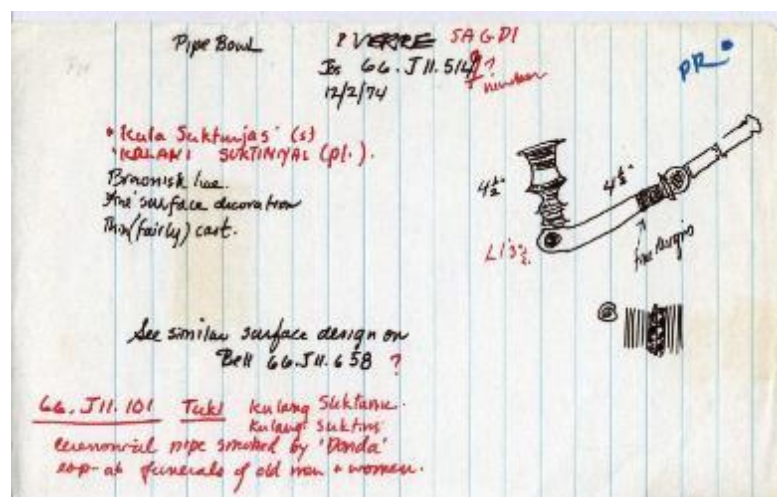 Pipe Bowl ? VERRE SAGDI
Jos 66.J11.514 ?
? number
12/2/74
PR
"Kula Suktinjas" (s)
"KALANI SUKTINIYAL (pl.).
Brownish hue.
Fine surface decoration
Thin (fairly) cast.
4½"
4½"
L 13½
See similar surface design on
Bell 66.J11.658 ?
66.J11.101 Tuki Kulang Suktame.
Kulangi Suktins
Ceremonial pipe smoked by 'Donda'
esp. at funerals of old men + women.